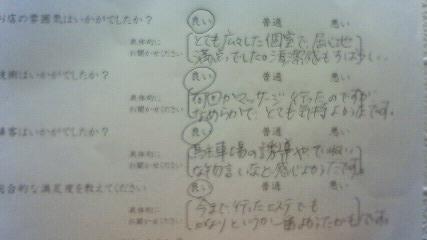 お店の雰囲気はいかがでしたか？
良い 普通 悪い
具体的に
お聞かせください
とても広々した個室で、居心地
満点でした。清潔感も
技術はいかがでしたか？
良い 普通 悪い
具体的に
お聞かせください
何回かマッサージ行ったのですが
なめらかで、とても気持よかったです。
接客はいかがでしたか？
良い 普通 悪い
具体的に
お聞かせください
駐車場の誘導やてい
な物言いなど感じよかったです。
総合的な満足度を教えてください
良い 普通 悪い
具体的に
お聞かせください
今まで行ったエステでも
かなりというか一番よかったかもです。